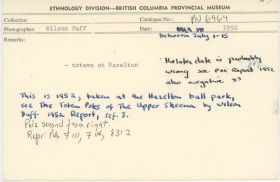 ETHNOLOGY DIVISION—BRITISH COLUMBIA PROVINCIAL MUSEUM
Collection: Catalogue No.: PN 6964
Photographer: Wilson Duff Date: 1952
between July 1-15
Remarks:
- totems at Hazelton
the later date is probably
wrong see PM Report 1952
also negative
This is 1952, taken at the Hazelton ball park,
see The Totem Poles of The Upper Skeena by Wilson
Duff 1952 Report, ref. 3.
Pole second from right.
Repr: Pubs 7111, 8312